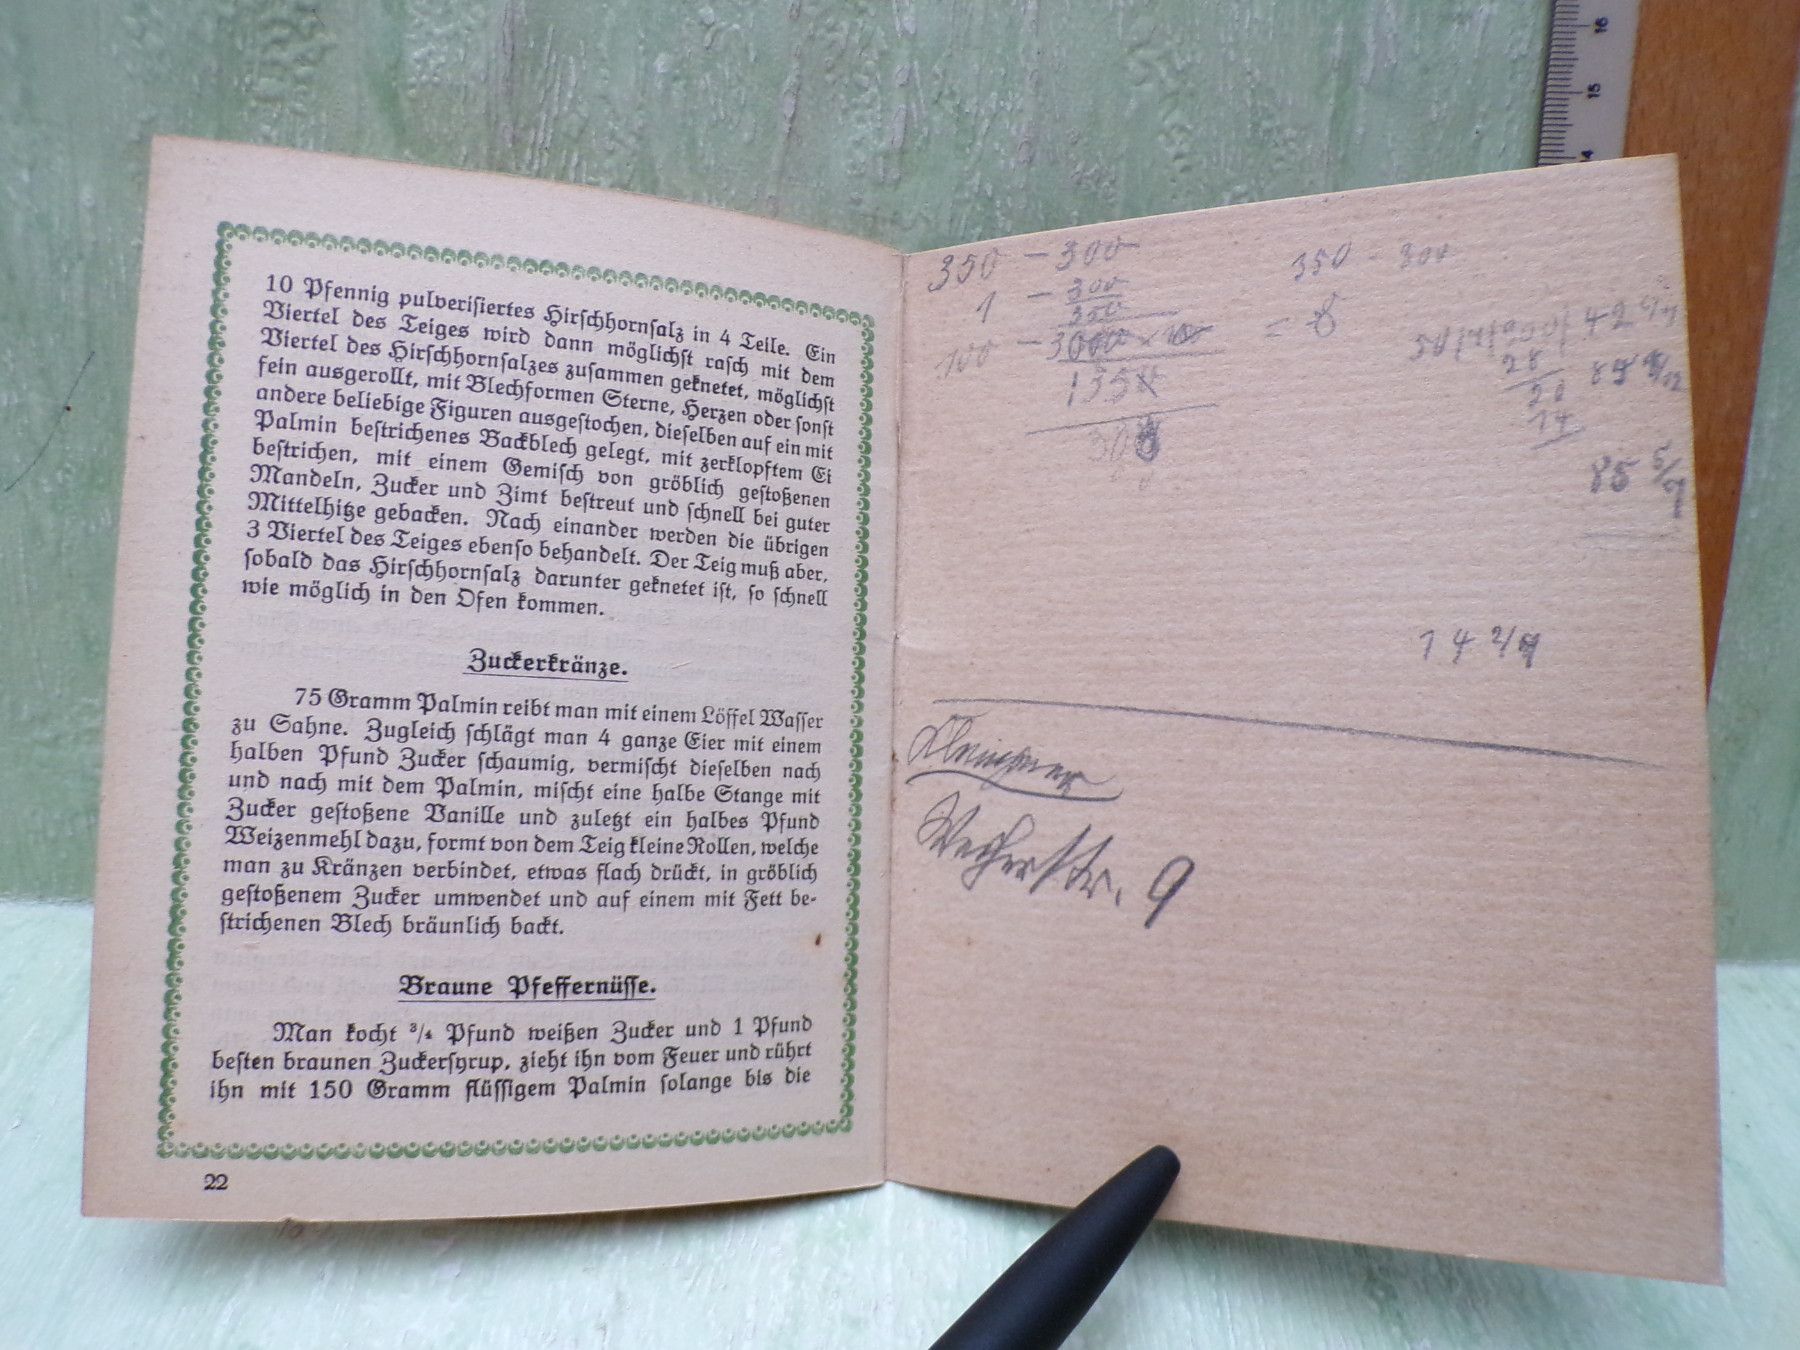 10 Pfennig pulverisiertes Hirschhornsalz in 4 Teile. Ein
Viertel des Teiges wird dann möglichst rasch mit dem
Viertel des Hirschhornsalzes zusammen geknetet, möglichst
fein ausgerollt, mit Blechformen Sterne, Herzen oder sonst
andere beliebige Figuren ausgestochen, dieselben auf ein mit
Palmin bestrichenes Backblech gelegt, mit zerklopftem Ei
bestrichen, mit einem Gemisch von gröblich gestoßenen
Mandeln, Zucker und Zimt bestreut und schnell bei guter
Mittelhitze gebacken. Nach einander werden die übrigen
3 Viertel des Teiges ebenso behandelt. Der Teig muß aber,
sobald das Hirschhornsalz darunter geknetet ist, so schnell
wie möglich in den Ofen kommen.
Zuckerkränze.
75 Gramm Palmin reibt man mit einem Löffel Wasser
zu Sahne. Zugleich schlägt man 4 ganze Eier mit einem
halben Pfund Zucker schaumig, vermischt dieselben nach
und nach mit dem Palmin, mischt eine halbe Stange mit
Zucker gestoßene Vanille und zuletzt ein halbes Pfund
Weizenmehl dazu, formt von dem Teig kleine Rollen, welche
man zu Kränzen verbindet, etwas flach drückt, in gröblich
gestoßenem Zucker umwendet und auf einem mit Fett be-
strichenen Blech bräunlich backt.
Braune Pfeffernüsse.
Man kocht ³/₄ Pfund weißen Zucker und 1 Pfund
besten braunen Zuckersyrup, zieht ihn vom Feuer und rührt
ihn mit 150 Gramm flüssigem Palmin solange bis die
22
350 – 300
1 – 300
350
100
350 - 300
28
20
14
85 5/7
14 2/7
9
16
15
14